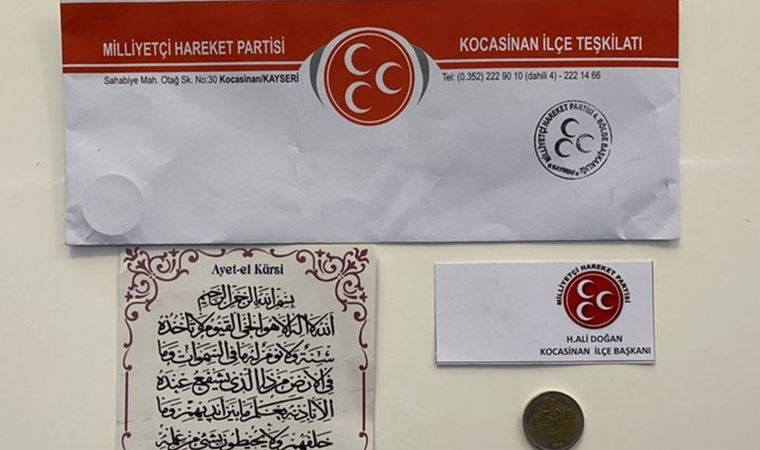 MİLLİYETÇİ HAREKET PARTİSİ
KOCASİNAN İLÇE TEŞKİLATI
Sahabiye Mah. Otağ Sk. No:30 Kocasinan/KAYSERİ
Tel: (0.352) 222 90 10 (dahili 4) - 222 14 66
MİLLİYETÇİ HAREKET PARTİSİ 4. BÖLGE BAŞKANLIĞI
KAYSERİ
Ayet-el Kürsi
بِسْمِ اللهِ الرَّحْمٰنِ الرَّحِيمِ
اَللهُ لَا اِلٰهَ اِلَّا هُوَ الْحَىُّ الْقَيُّومُ لَا تَأْخُذُهُ
سِنَةٌ وَلَا نَوْمٌ لَهُ مَا فِى السَّمٰوَاتِ وَمَا
فِى الْاَرْضِ مَنْ ذَا الَّذِى يَشْفَعُ عِنْدَهُ
اِلَّا بِاِذْنِهِ يَعْلَمُ مَا بَيْنَ اَيْدِيهِمْ وَمَا
خَلْفَهُمْ وَلَا يُحِيطُونَ بِشَىْءٍ مِنْ عِلْمِهِ
MİLLİYETÇİ HAREKET PARTİSİ
H.ALİ DOĞAN
KOCASİNAN İLÇE BAŞKANI
50